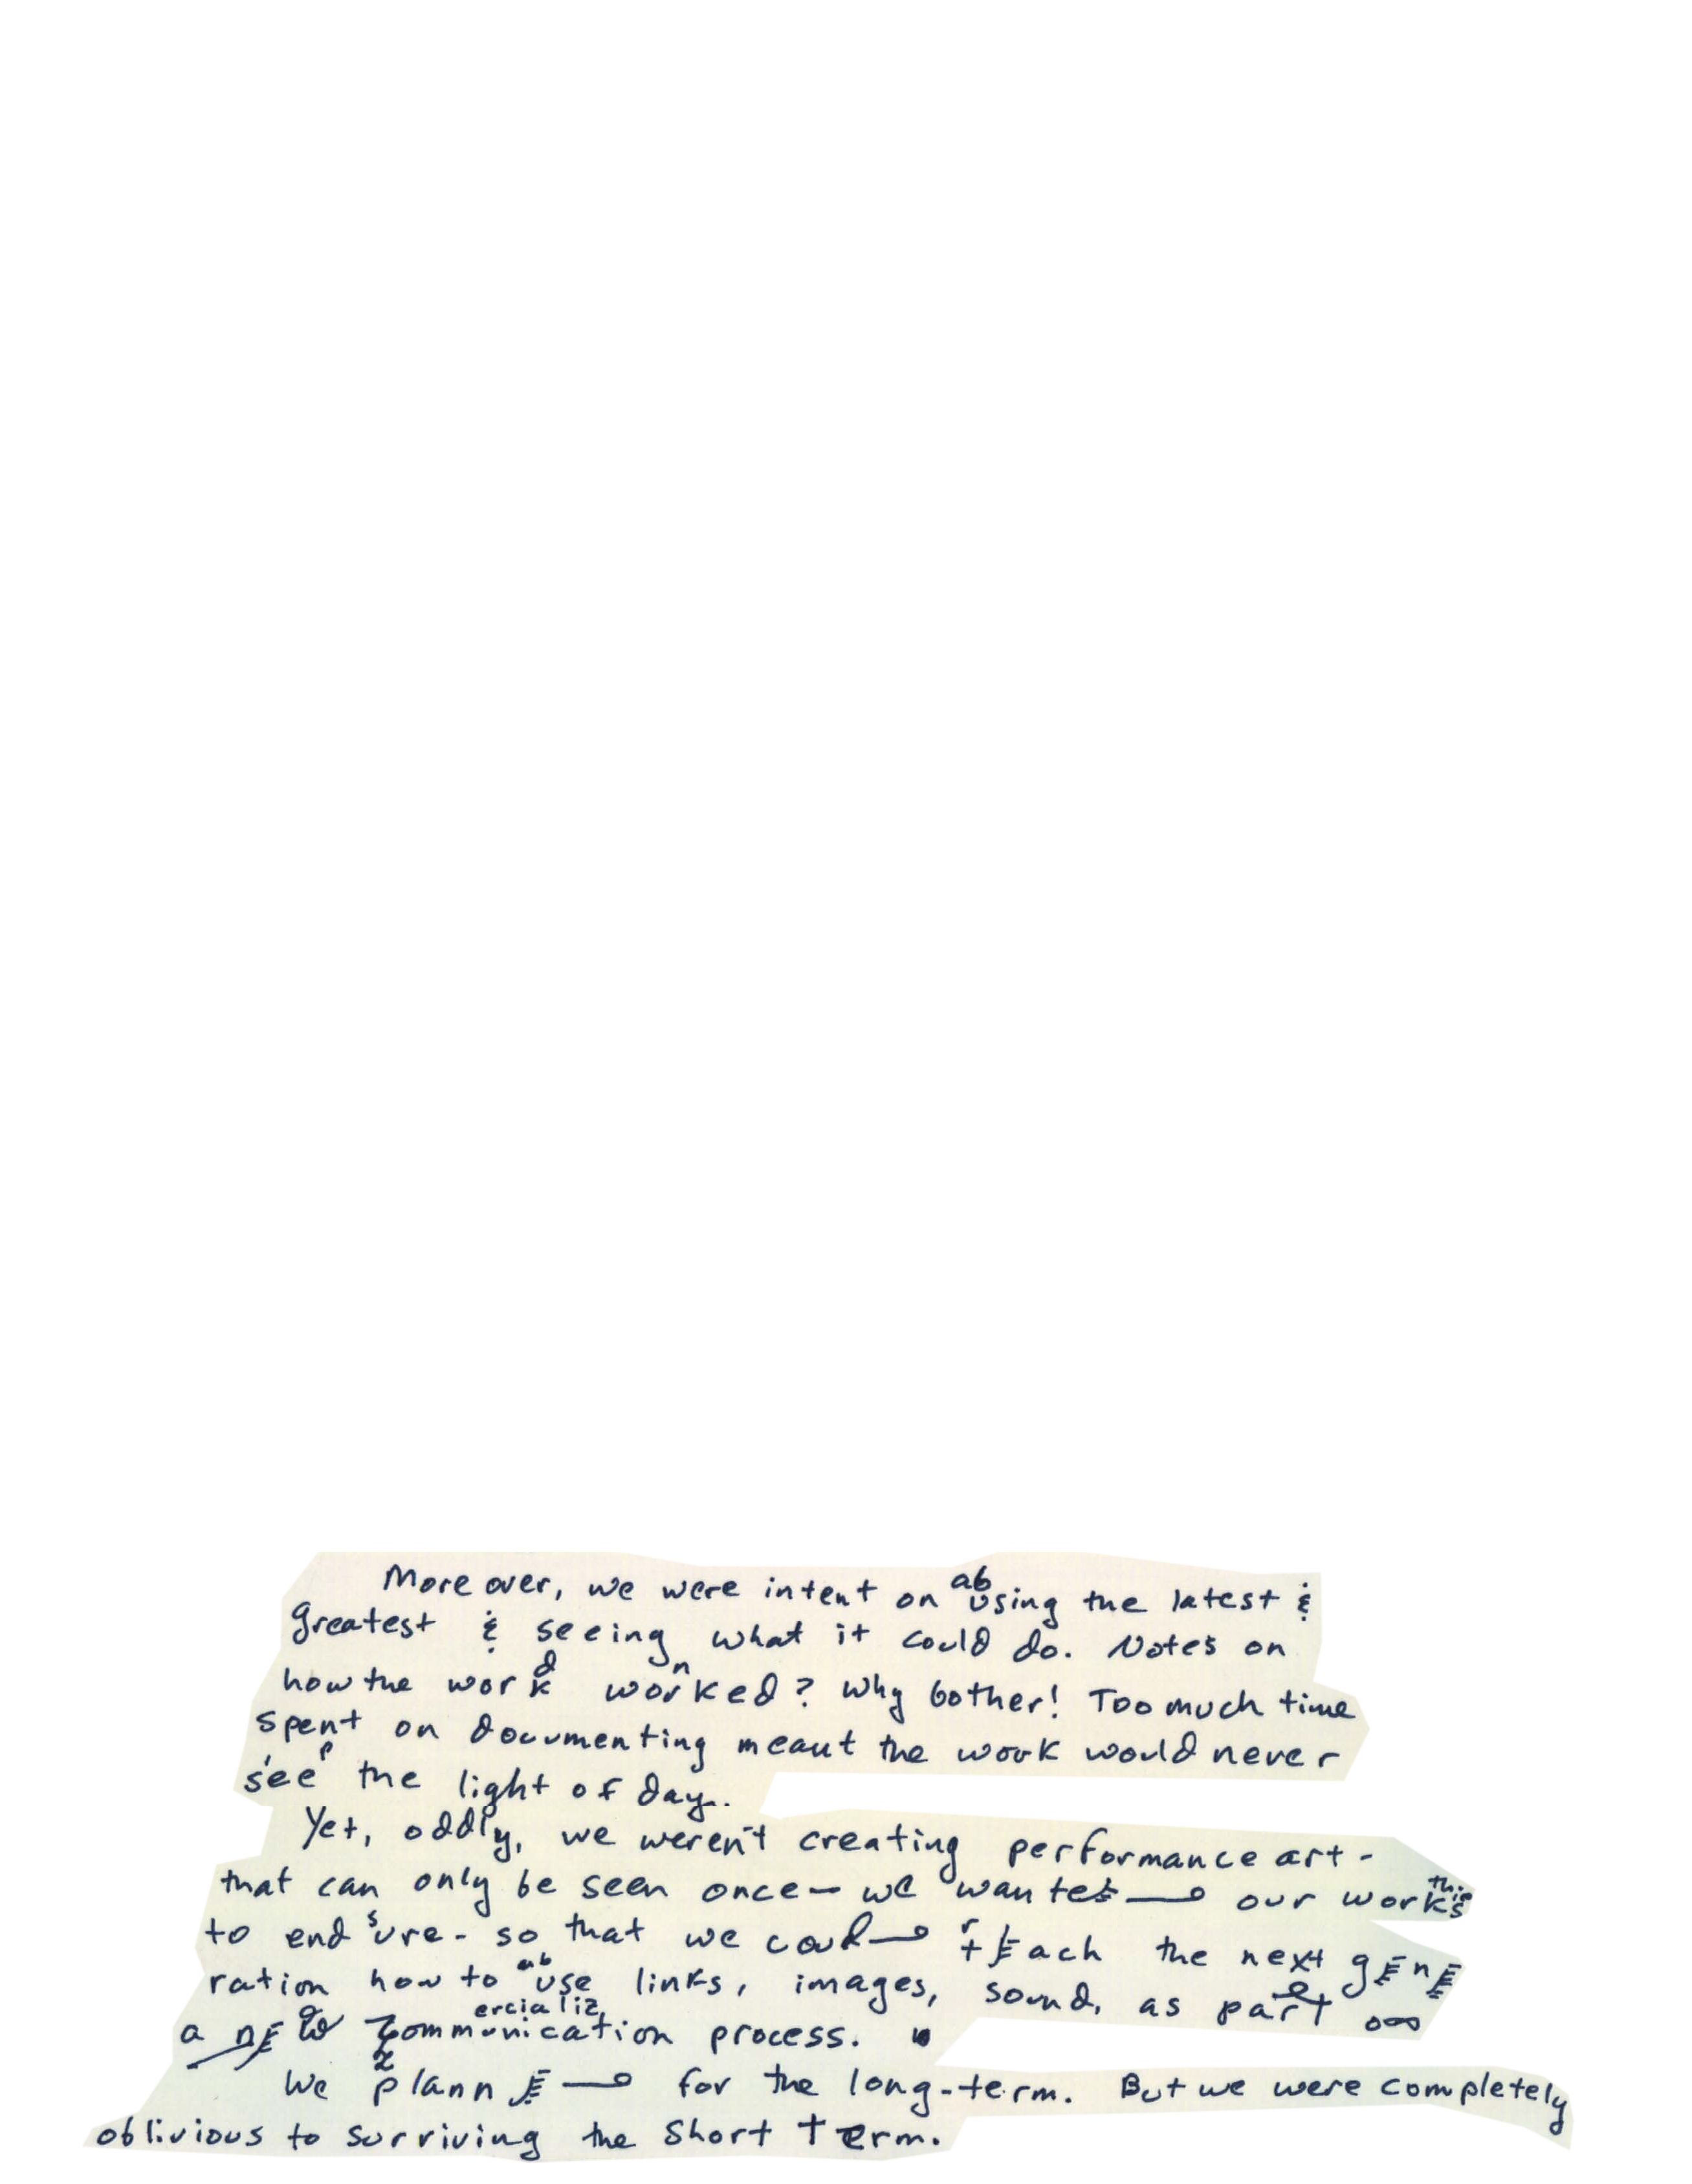 Moreover, we were intent on ab using the latest &
greatest & seeing what it could do. Notes on
how the work d worked n? Why bother! Too much time
spent on documenting meant the work would never
see p the light of day.
Yet, oddly, we weren't creating performance art -
that can only be seen once - we wante our works this
to end s ure - so that we coul r tEach the next gEnE
ration how to ab use links, images, sound, as part e
a nEw communication ercializ process.
We plannE for the long-term. But we were completely
oblivious to surviving the short term.